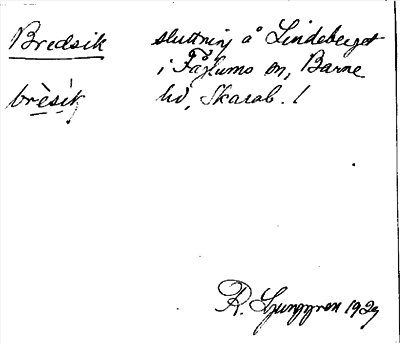 Bredsik sluttning å Lindeberget
i Fåglumo sn, Barne
brèsik hd, Skarab. l
R. Ljunggren 1929